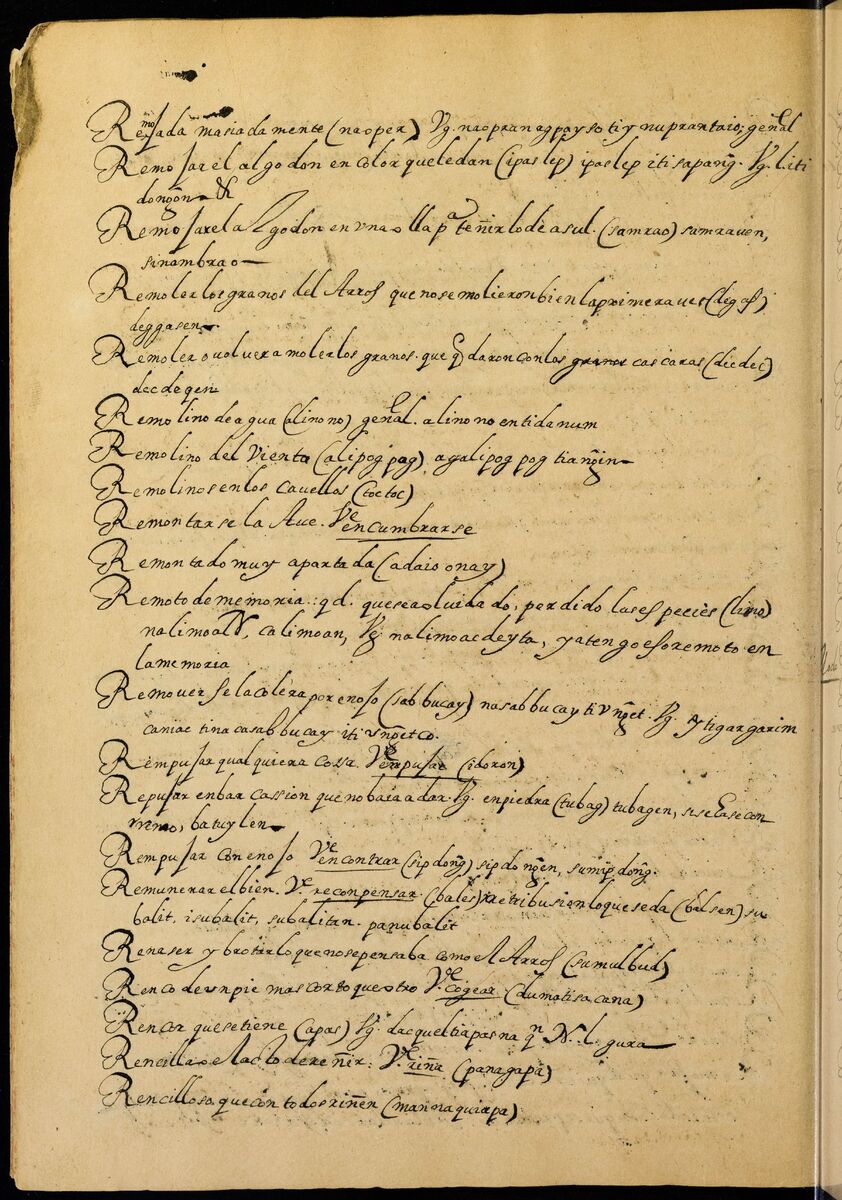 Remojada masiadamente (naoper) Vg. naopranagpayso ti y nuprantaio; genal
Remojar el algodon en color que le dan (ipaslep) ipaslep iti sapang. Vg. l iti
dongon &
Remojar el Algodon en vna olla pa teñirlo de asul. (samrao) samrauen,
sinambrao
Remoler los granos del Arros que no se molieron bien la primera ves (degas)
deggasen
Remoler o voluer a moler los granos. que qdaron con los granos cascaras (decdec)
decdeqen
Remolino de agua (alinono) genal. alinono enti danum
Remolino del Viento (alipogpog) agalipogpog ti angin
Remolinos en los cauellos (toctoc)
Remontarse la Aue. Ve encumbrarse
Remontado muy apartada (adaio onay)
Remoto de memoria: qd. que sea oluidado, perdido las especies (limo)
nalimo al N, calimoan, Vg nalimoac deyta, ya tengo eso remoto en
la memoria
Remouerse la colera por enojo (sabbucay) nasabbucay ti vnget. Vg. Aytigargarim
caniac tinacasabbucay iti vnget co.
Rempujar qualquiera cossa. Ve empujar (idoron)
Repujar enbarcassion que no baia a dar. Vg. en piedra (tubag) tubagen, si se ase con
remo, batuylen
Rempujar con enojo Ve encontrar (sipdong) sipdongen, sumipdong.
Remunerar el bien. Ve reconpensar (bales) retribusion lo que se da (balsen) su
balit, isubalit, subalitan. panubalit
Renaser y brotar lo que no se pensaba como el Arros (sumulbud)
Renco de vn pie mas corto que otro Ve cogear (dumatisacana)
Rencor que se tiene (apas) Vg. dacquel ti apas na qn N. l. gura
Rencilla o el acto de reñir: Ve riña (panagapa)
Rencilloso que con todos riñen (mannaquiapa)